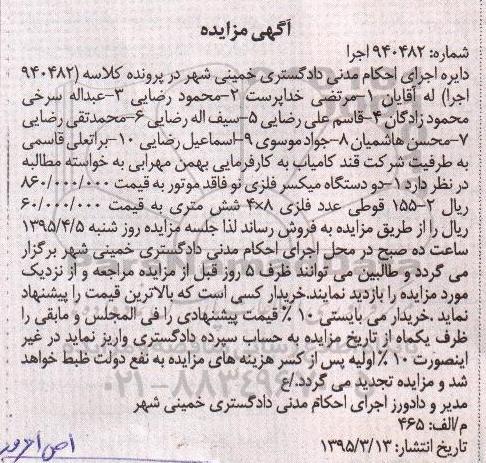 آگهی مزایده
شماره: ۹۴۰۴۸۲ اجرا
دایره اجرای احکام مدنی دادگستری خمینی شهر در پرونده کلاسه (۹۴۰۴۸۲
اجرا) له آقایان ۱-مرتضی خداپرست ۲-محمود رضایی ۳-عبداله سرخی
محمود زادگان ۴-قاسم علی رضایی ۵-سیف اله رضایی ۶-محمدتقی رضایی
۷-محسن هاشمیان ۸-جواد موسوی ۹-اسماعیل رضایی ۱۰-براتعلی قاسمی
به طرفیت شرکت قند کامیاب به کارفرمایی بهمن مهرابی به خواسته مطالبه
در نظر دارد ۱-دو دستگاه میکسر فلزی نو فاقد موتور به قیمت ۸۶۰/۰۰۰/۰۰۰
ریال ۲-۱۵۵ قوطی عدد فلزی ۸×۴ شش متری به قیمت ۶۰/۰۰۰/۰۰۰
ریال را از طریق مزایده به فروش رساند لذا جلسه مزایده روز شنبه ۱۳۹۵/۴/۵
ساعت ده صبح در محل اجرای احکام مدنی دادگستری خمینی شهر برگزار
می گردد و طالبین می توانند ظرف ۵ روز قبل از مزایده مراجعه و از نزدیک
مورد مزایده را بازدید نمایند.خریدار کسی است که بالاترین قیمت را پیشنهاد
نماید .خریدار می بایستی ۱۰ ٪ قیمت پیشنهادی را فی المجلس و مابقی را
ظرف یکماه از تاریخ مزایده به حساب سپرده دادگستری واریز نماید در غیر
اینصورت ۱۰ ٪ اولیه پس از کسر هزینه های مزایده به نفع دولت ظبط خواهد
شد و مزایده تجدید می گردد./ع
مدیر و دادورز اجرای احکام مدنی دادگستری خمینی شهر
م/الف: ۴۶۵
تاریخ انتشار: ۱۳۹۵/۳/۱۳